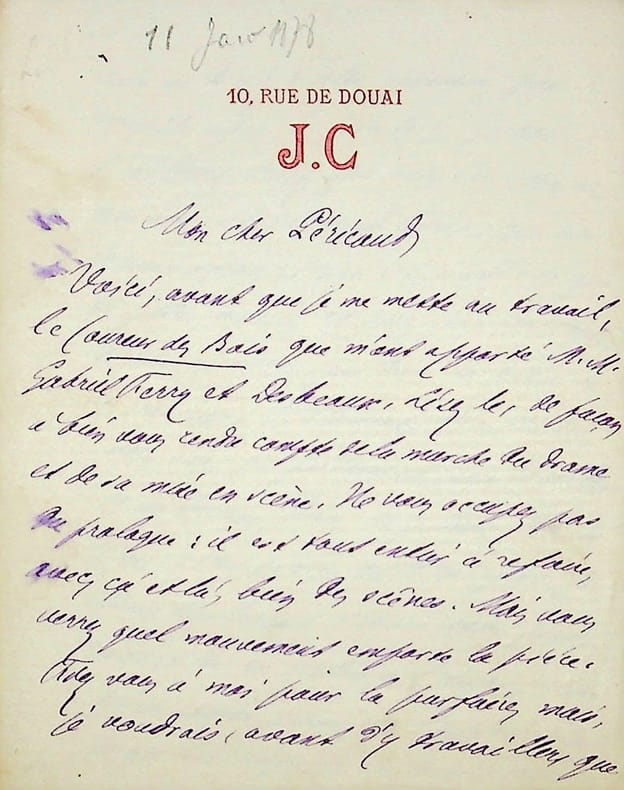 11 Janv 1878
10, RUE DE DOUAI
J.C
Mon cher Péricaud
Voici, avant que je me mette au travail,
le Coureur des Bois que m'ont apporté M.M.
Gabriel Ferry et Desbeaux. Lisez le, de façon
à bien vous rendre compte de la marche du drame
et de sa mise en scène. Ne vous occupez pas
du prologue : il est tout entier à refaire,
avec, çà et là, bien des scènes. Mais vous
verrez quel mouvement emporte la pièce.
Fiez vous à moi pour la parfaire, mais,
je voudrais, avant d'y travailler, que